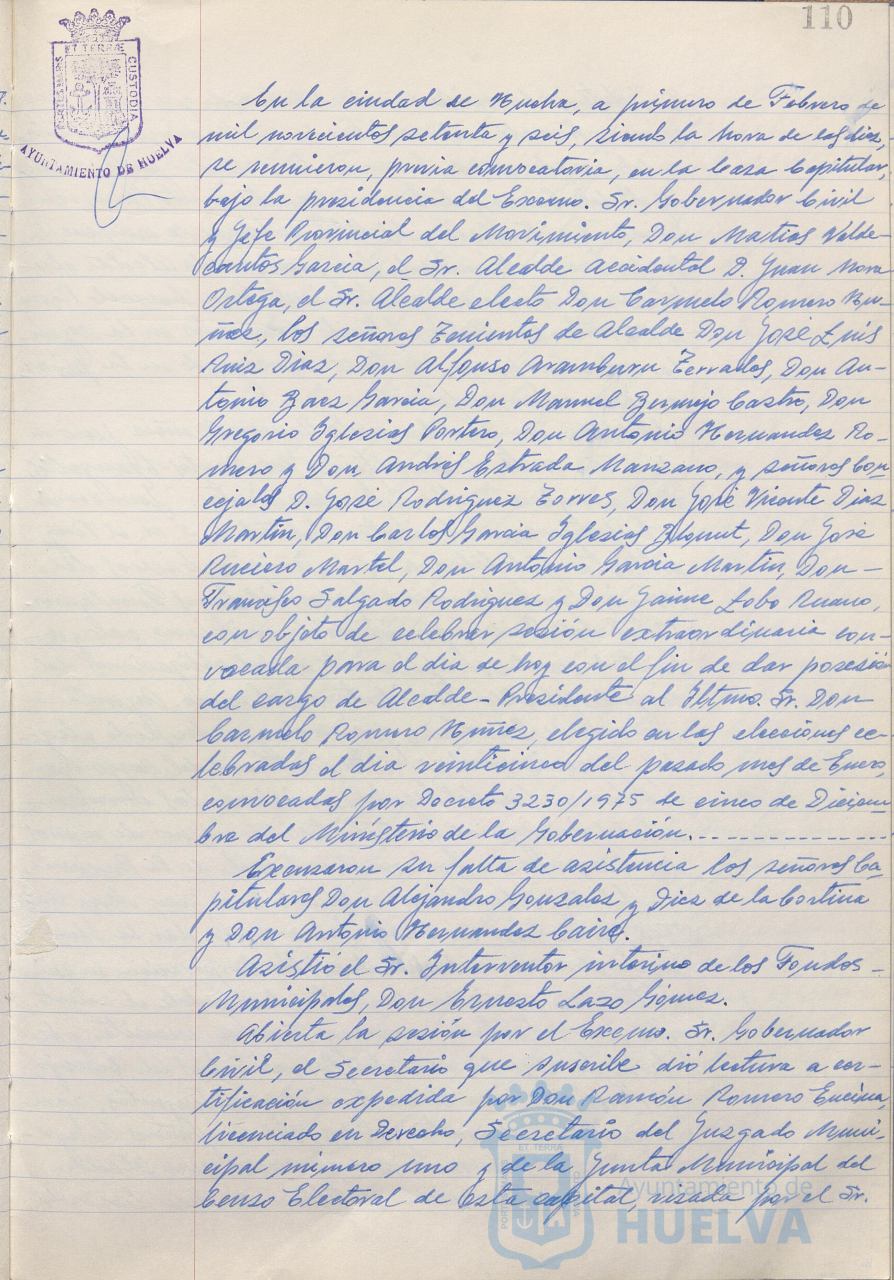 110
PORTUS MARIS ET TERRÆ CUSTODIA
AYUNTAMIENTO DE HUELVA
En la ciudad de Huelva, a primero de Febrero de
mil novecientos setenta y seis, siendo la hora de las diez,
se reunieron, previa convocatoria, en la Casa Capitular,
bajo la presidencia del Excmo. Sr. Gobernador Civil
y Jefe Provincial del Movimiento, Don Matías Valde-
cantos García, el Sr. Alcalde Accidental D. Juan Mora
Ortega, el Sr. Alcalde electo Don Carmelo Romero Nu-
ñez, los señores Tenientes de Alcalde Don José Luis
Ruiz Diaz, Don Alfonso Aramburu Terrades, Don An-
tonio Baez Garcia, Don Manuel Bermejo Castro, Don
Gregorio Iglesias Portero, Don Antonio Hernandez Ro-
mero y Don Andrés Estrada Manzano, y señores Con-
cejales D. José Rodriguez Torres, Don José Vicente Diaz
Martin, Don Carlos Garcia Iglesias Blomut, Don José
Ruciero Martel, Don Antonio Garcia Martin, Don-
Francisco Salgado Rodriguez y Don Jaime Lobo Ruano,
con objeto de celebrar sesión extraordinaria con-
vocada para el dia de hoy con el fin de dar posesión
del cargo de Alcalde-Presidente al Iltmo. Sr. Don
Carmelo Romero Nuñez, elegido en las elecciones ce-
lebradas el dia veinticinco del pasado mes de Enero,
convocadas por Decreto 3230/1975 de cinco de Diciem-
bre del Ministerio de la Gobernación.---------------
Excusaron su falta de asistencia los señores Ca-
pitulares Don Alejandro Gonzalez y Diez de la Cortina
y Don Antonio Hernandez Caire.
Asistió el Sr. Interventor interino de los Fondos-
Municipales, Don Ernesto Lazo Gómez.
Abierta la sesión por el Excmo. Sr. Gobernador
Civil, el Secretario que suscribe dió lectura a cer-
tificación expedida por Don Ramón Romero Encina,
licenciado en Derecho, Secretario del Juzgado Muni-
cipal número uno y de la Junta Municipal del
Censo Electoral de esta capital, visada por el Sr.
Ayuntamiento de
HUELVA